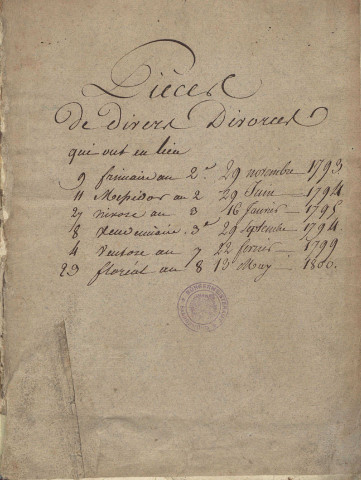 Pièces
de divers Divorces
qui ont eu lieu
9 frimaire au 2e 29 novembre 1793.
11 Messidor au 2 29 Juin 1794
27 nivose au 3 16 Janvier 1795
8 Vendemiaire 3e 29 Septembre 1794.
4 Ventose au 7 22 fevrier 1799
23 floréal au 8 13 May 1800.